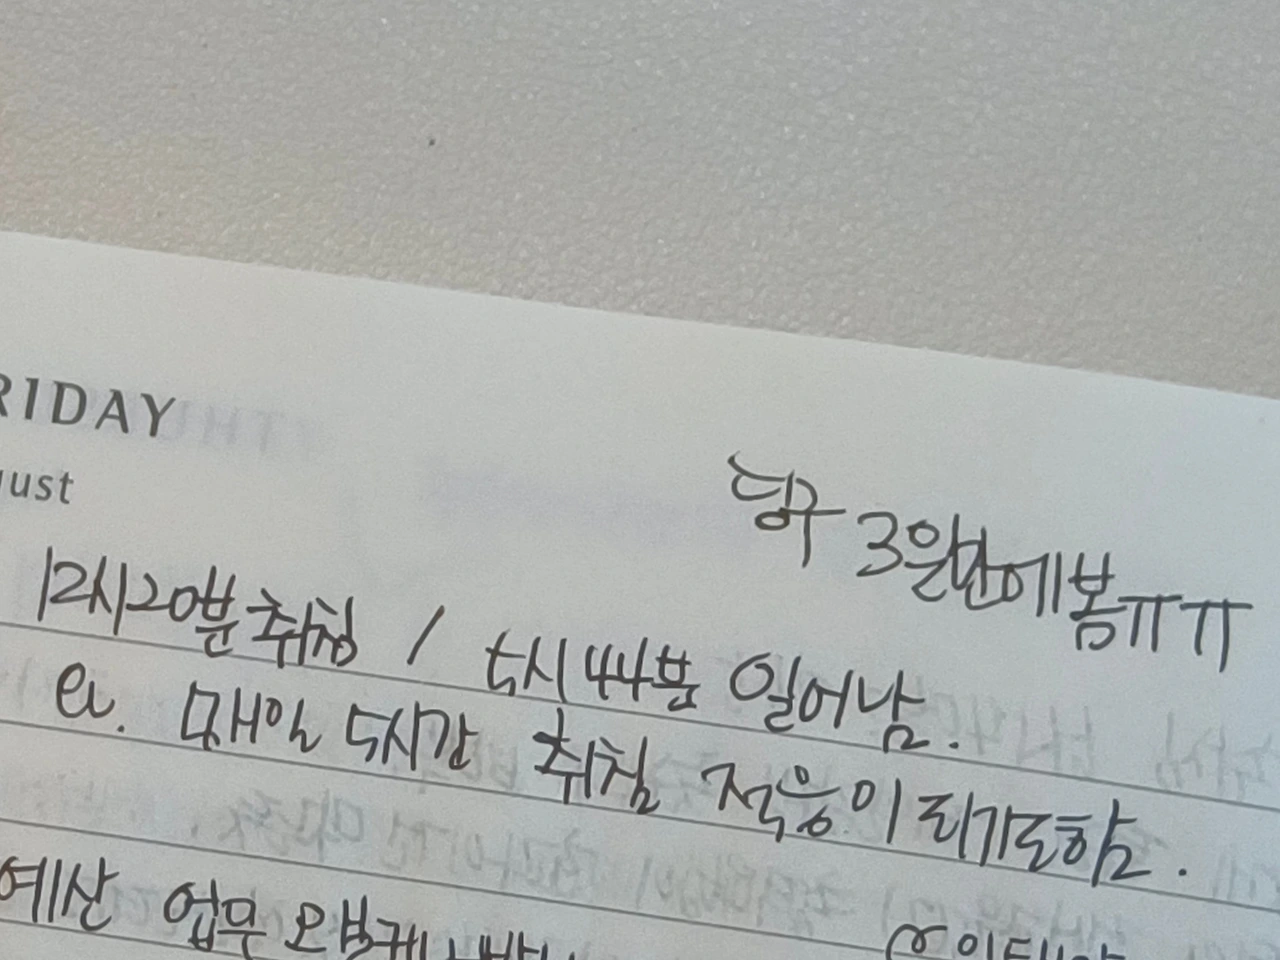 RIDAY
ust
3일만에봄ㅠㅠ
12시20분취침 / 5시44분 일어남.
매일 5시간 취침 적응이되기도함.
예산 업무